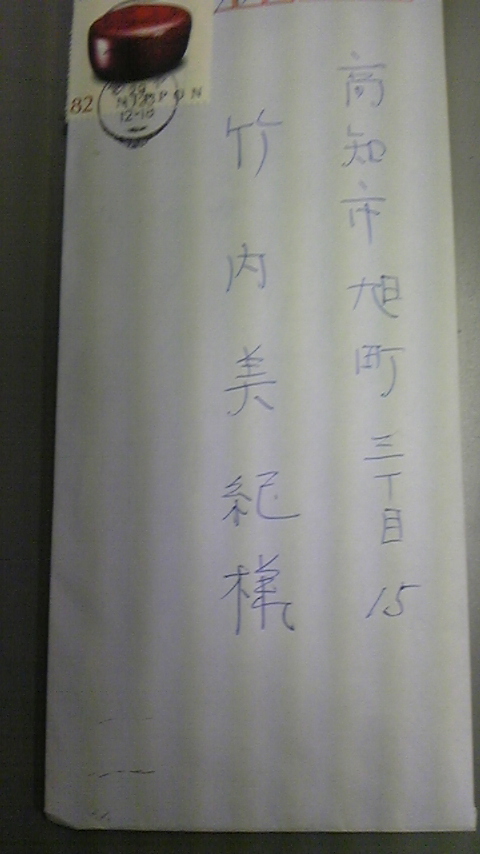 高知市旭町三丁目15
竹内美紀様
82
NIPPON
12-18